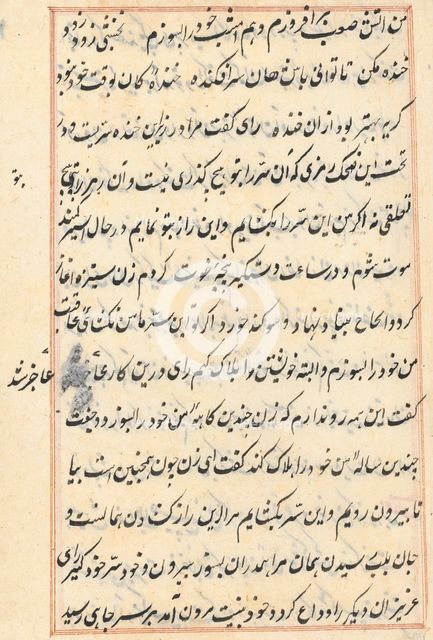 من آتش صعب برافروزم و هم امشب خود را بسوزم نخشبی زود زود
خنده مکن تا توانی باش هان سرافکنده خنده کان بوقت خود نبود
گریه بهتر بود از آن خنده رای گفت مرا در زیر این خنده سریست و در
تحت این ضحک رمزی که آن سر را بتو هیچ گذری نیست و آن رمز را بتو هیچ
تعلقی نه اگر من این سر را بگشایم و این راز بتو نمایم در حال اسیر کمند
موت شوم و در ساعت دستگیر پنجه فوت گردم زن ستیزه آغاز
کرد و الحاح بنیاد نهاد و سوگند خورد اگر تو این سر با من نگشائی عاقبت
من خود را بسوزم و البته خویشتن را هلاک کنم رای درین کار عاجز
عاجز شد
گفت این همه روا ندارم که زن چندین گاهه من خود را بسوزد و جفت
چندین ساله من خود را هلاک کند گفت ای زن چون همچنین است بیا
تا بیرون رویم و این سر بگشایم مرا این راز گشادن همانست و
جان بلب رسیدن همان مرا همدران بسوز بیرون و خود سر خود گیر رای
عزیزان دیگر را وداع کرد و خود بنیت بیرون آمد بر سر چاهی رسید